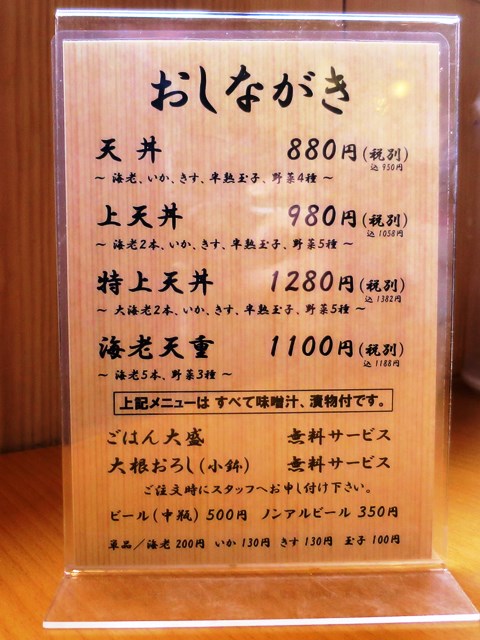 おしながき
天丼 880円(税別)
込 950円
～ 海老、いか、きす、半熟玉子、野菜4種 ～
上天丼 980円(税別)
込 1058円
～ 海老2本、いか、きす、半熟玉子、野菜5種 ～
特上天丼 1280円(税別)
込 1382円
～ 大海老2本、いか、きす、半熟玉子、野菜5種 ～
海老天重 1100円(税別)
込 1188円
～ 海老5本、野菜3種 ～
上記メニューは すべて味噌汁、漬物付です。
ごはん大盛 無料サービス
大根おろし(小鉢) 無料サービス
ご注文時にスタッフへお申し付け下さい。
ビール(中瓶) 500円 ノンアルビール 350円
単品／海老 200円 いか 130円 きす 130円 玉子 100円